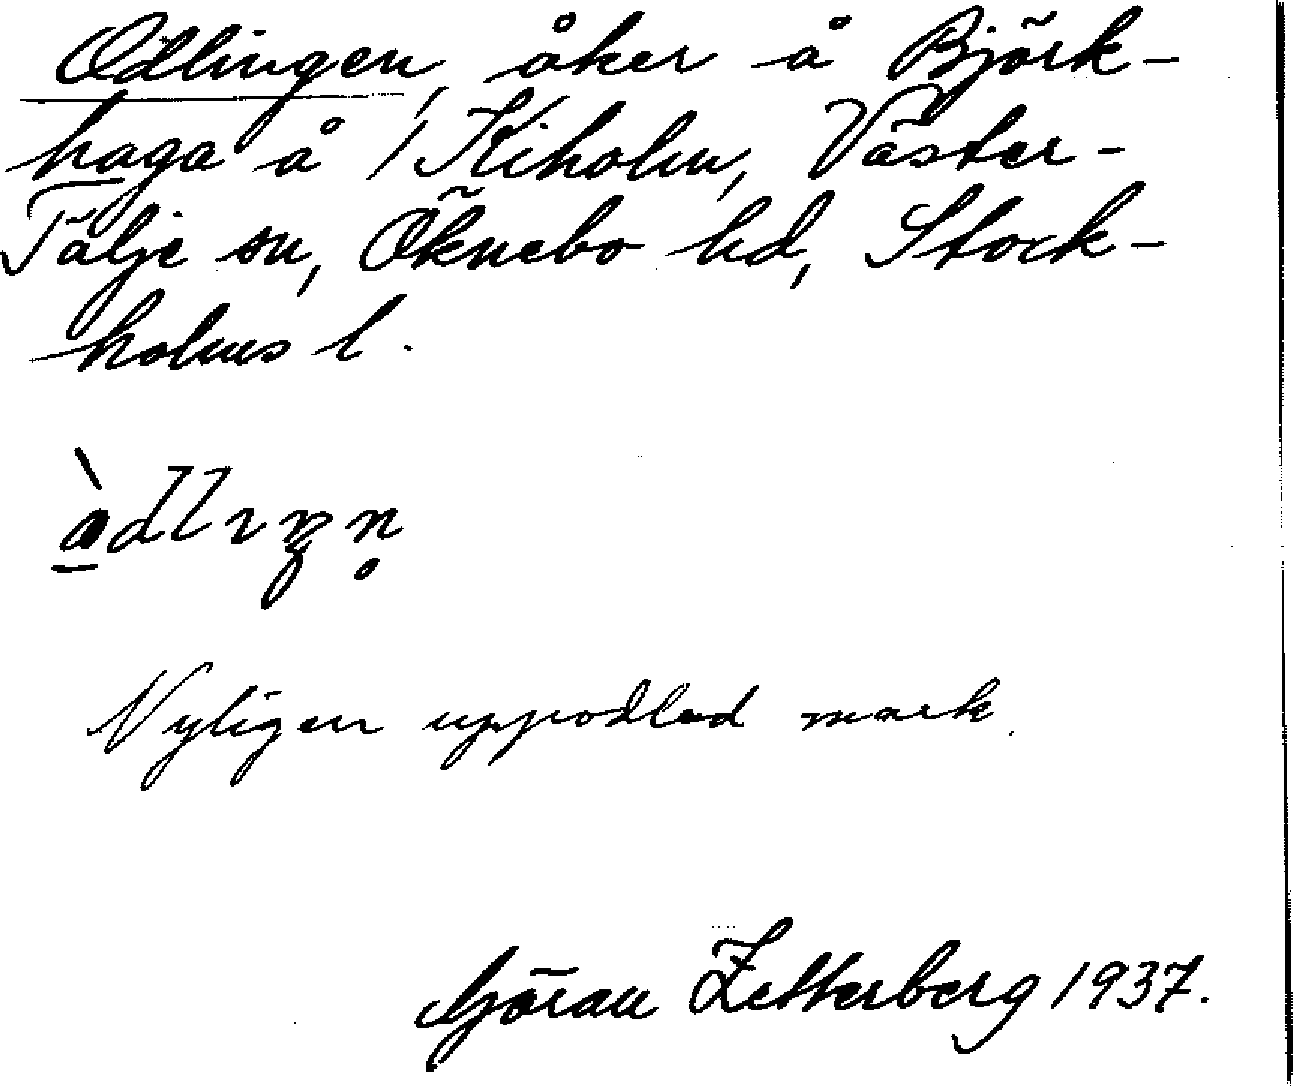 Odlingen, åker å Björk-
haga å / Kiholm, Väster-
Tälje sn, Öknebo hd, Stock-
holms l.
Nyligen uppodlad mark.
Göran Zetterberg 1937.